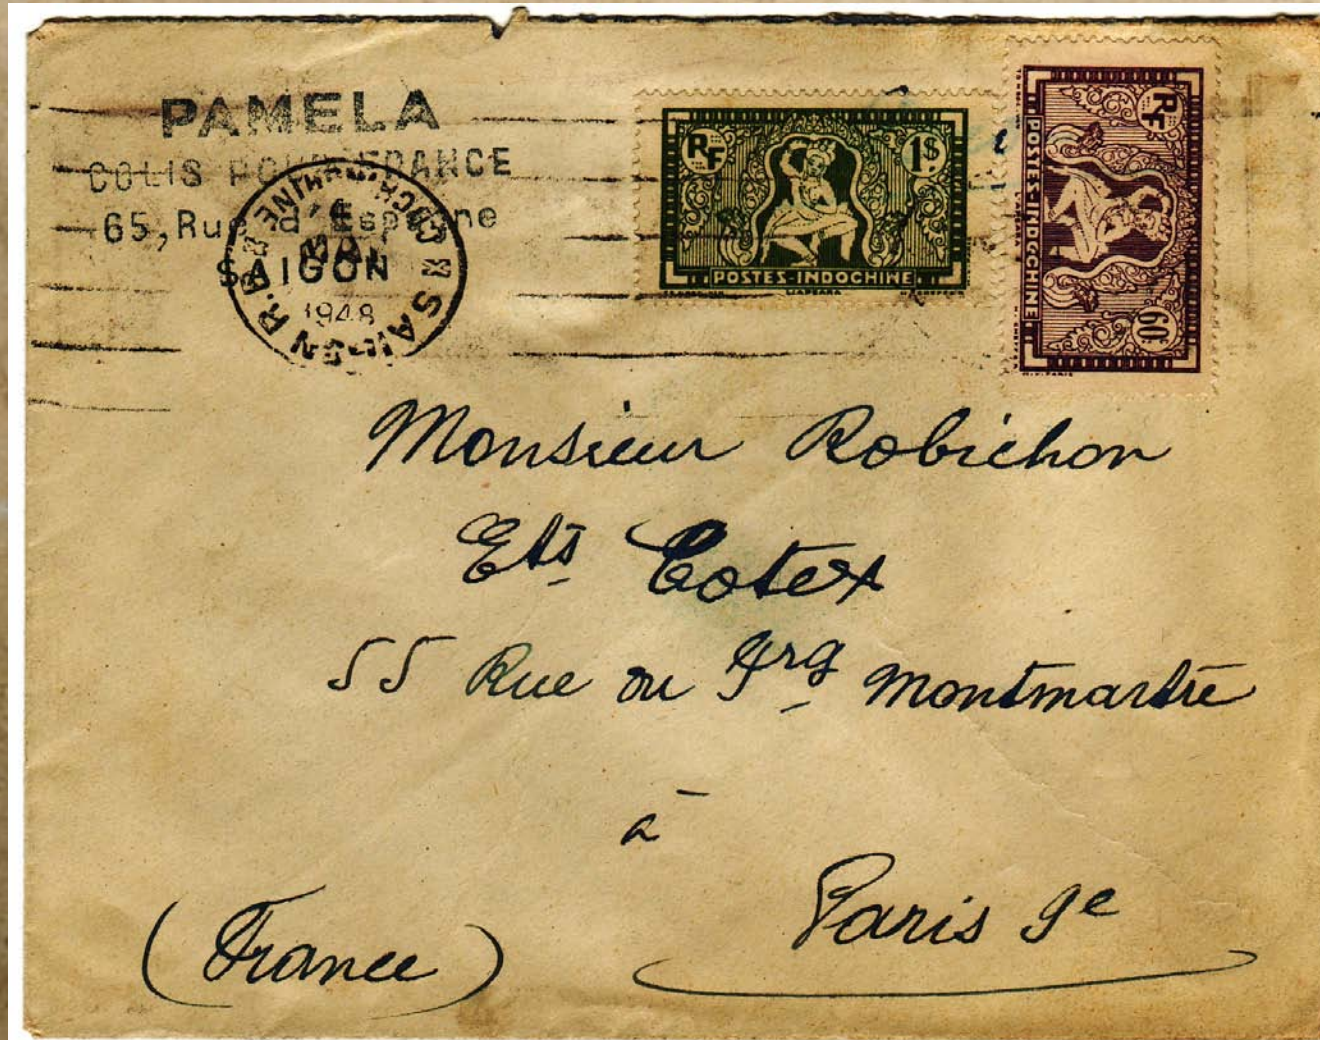 PAMELA
COLIS POUR FRANCE
65, Rue d'Espagne
SAIGON
SAIGON R.P. COCHINCHINE
1948
RF
1$
POSTES-INDOCHINE
RF
60c
POSTES-INDOCHINE
Monsieur Robichon
Ets Cotex
55 Rue du Frg Montmartre
à
Paris 9e
(France)